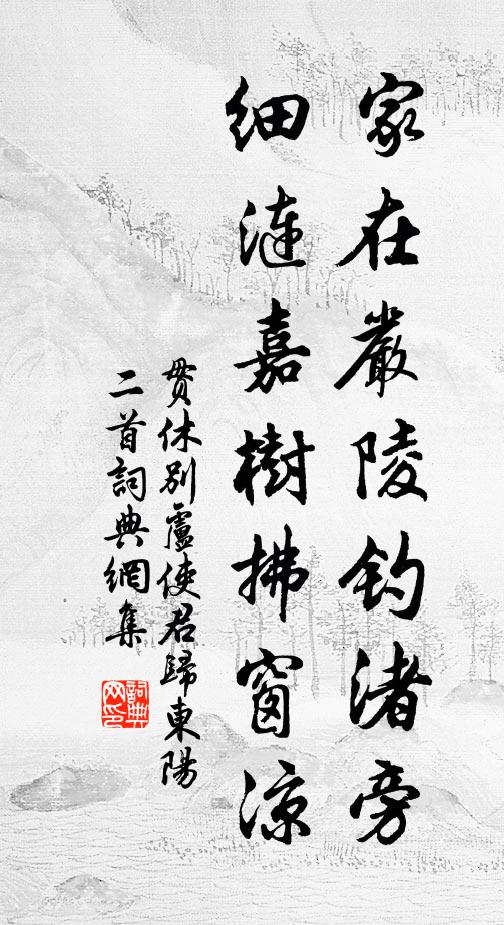 家在嚴陵釣渚旁
細漣嘉樹拂窗涼
貫休別盧使君歸東陽
二首詞典網集
詞典网印